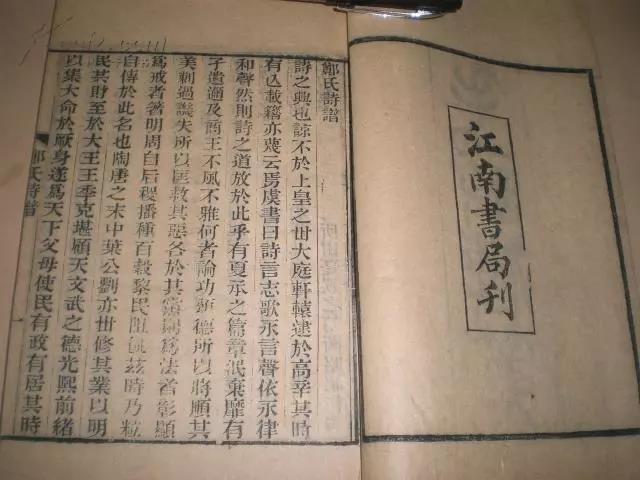 江南書局刊
鄭氏詩譜
詩之興也諒不於上皇之世大庭軒轅逮於高辛其時
有亡載籍亦蔑云焉虞書曰詩言志歌永言聲依永律
和聲然則詩之道放於此乎有夏承之篇章泯棄靡有
孑遺邇及商王不風不雅何者論功頌德所以將順其
美刺過譏失所以匡救其惡各於其黨則爲法者彰顯
爲戒者著明周自后稷播種百穀黎民阻飢茲時乃粒
自傳於此名也陶唐之末中葉公劉亦世修其業以明
民共財至於大王王季克堪顧天文武之德光熙前緒
以集大命於厥身遂爲天下父母使民有政有居其時
鄭氏詩譜